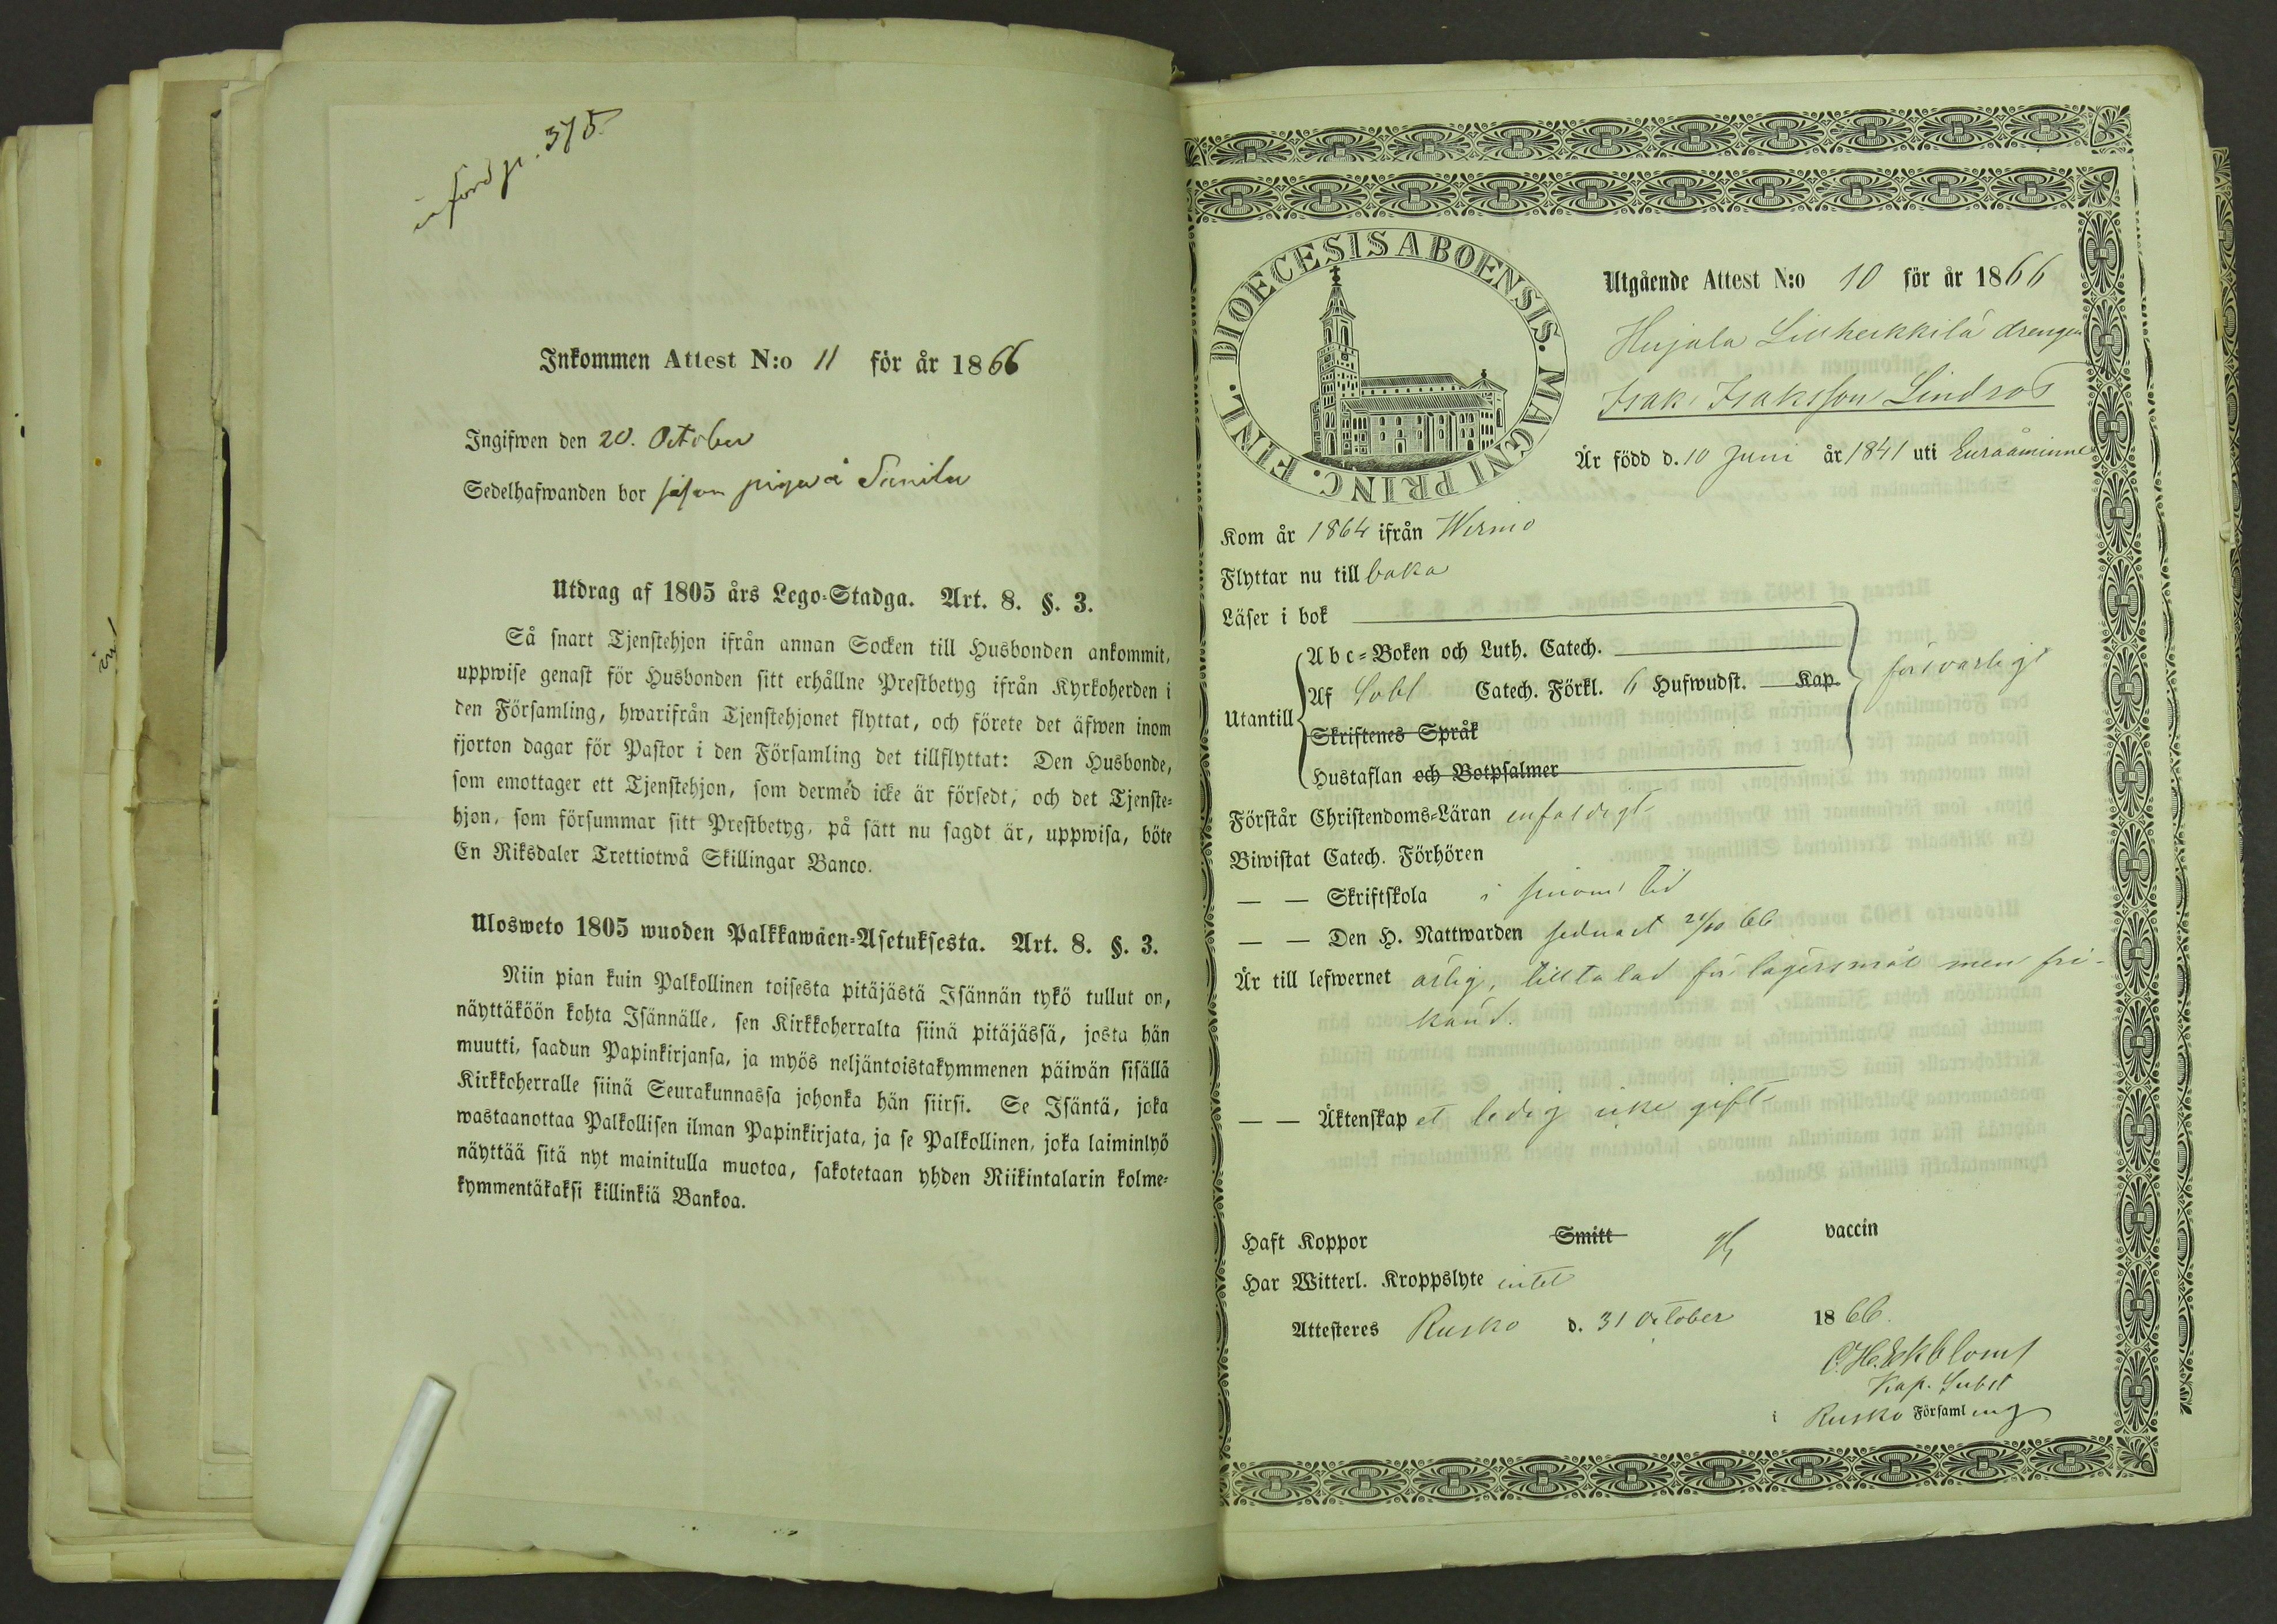 införd p. 375
Inkommen Attest N:o 11 för år 1866
Ingifwen den 20. October
Sedelhafwanden bor såsom piga å
Utdrag af 1805 års Lego-Stadga. Art. 8. §. 3.
Så snart Tjenstehjon ifrån annan Socken till Husbonden ankommit,
uppwise genast för Husbonden sitt erhållne Prestbetyg ifrån Kyrkoherden i
den Församling, hwarifrån Tjenstehjonet flyttat, och förete det äfwen inom
fjorton dagar för Pastor i den Församling det tillflyttat: Den Husbonde,
som emottager ett Tjenstehjon, som dermed icke är försedt, och det Tjenste-
hjon, som försummar sitt Prestbetyg, på sätt nu sagdt är, uppwisa, böte
En Riksdaler Trettiotwå Skillingar Banco.
Ulosweto 1805 wuoden Palkkawäen-Asetuksesta. Art. 8. §. 3.
Niin pian kuin Palkollinen toisesta pitäjästä Isännän tykö tullut on,
näyttäköön kohta Isännälle, sen Kirkkoherralta siinä pitäjässä, josta hän
muutti, saadun Papinkirjansa, ja myös neljäntoistakymmenen päiwän sisällä
Kirkkoherralle siinä Seurakunnassa johonka hän siirsi. Se Isäntä, joka
wastaanottaa Palkollisen ilman Papinkirjata, ja se Palkollinen, joka laiminlyö
näyttää sitä nyt mainitulla muotoa, sakotetaan yhden Riikintalarin kolme-
kymmentäkaksi killinkiä Bankoa.
DIOECESIS ABOENSIS. MAGNI PRINC. FINL.
Utgående Attest N:o 10 för år 1866
Hujala Lillheikkilä drengen
Isak Isaksson Lindros
Är född d. 10 Juni år 1841 uti Euraåminne
Kom år 1864 ifrån Wirmo
Flyttar nu till baka
Läser i bok
Utantill
Abc-Boken och Luth. Catech.
Af Sv Catech. Förkl. 6 Hufwudst. Kap.
försvarligt
Skriftenes Språk
Hustaflan och Botpsalmer
Förstår Christendoms-Läran enfaldigt
Biwistat Catech. Förhören
— — Skriftskola i sinom tid
— — Den H. Nattwarden sednast 21/10 66
Är till lefwernet ärlig, tilltalad för lägersmål men fri-
känd.
— — Äktenskap et ledig icke gift
Haft Koppor Smitt vaccin
Har Witterl. Kroppslyte intet
Attesteres Rusko d. 31 October 1866.
C. H. Ekblom
Kap. Subst
i Rusko Församling